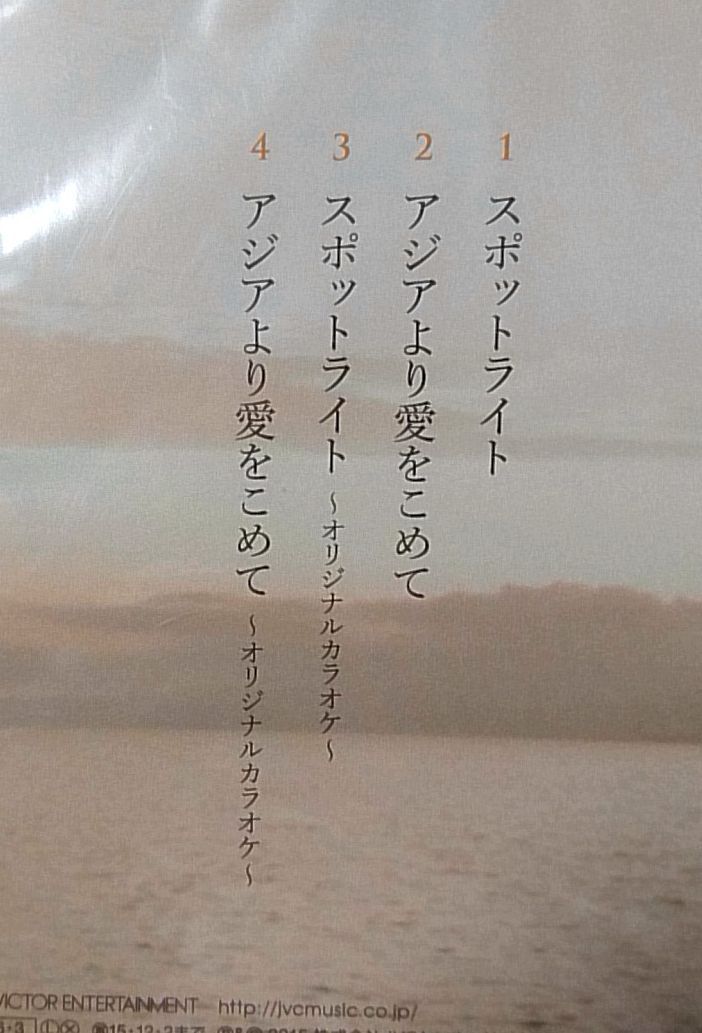 1 スポットライト
2 アジアより愛をこめて
3 スポットライト ～オリジナルカラオケ～
4 アジアより愛をこめて ～オリジナルカラオケ～
VICTOR ENTERTAINMENT http://jvcmusic.co.jp/